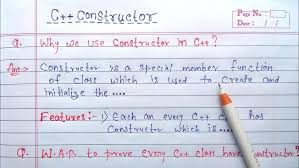 C++ Constructor
Page No.
Date: / /
Q. Why we use Constructor in C++?
Ans:- Constructor is a special member function
of class which is used to create and
initialize the....
Features:- 1) Each an every C++ class has
Constructor which is.....
Q. W.A.P. to prove every C++ class have Construct